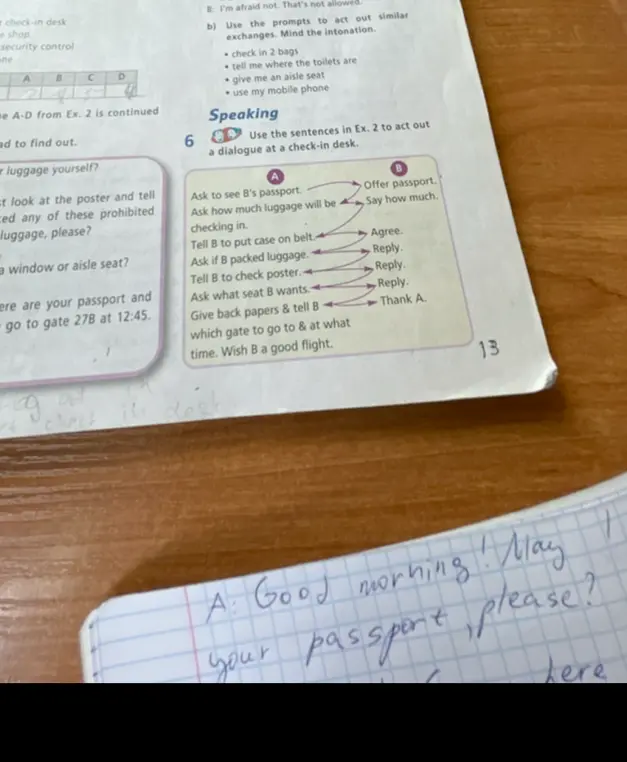 check-in desk
shop
security control
A B C D
A-D from Ex. 2 is continued
ad to find out.
luggage yourself?
look at the poster and tell
any of these prohibited
luggage, please?
a window or aisle seat?
are your passport and
go to gate 27B at 12:45.
B: I'm afraid not. That's not allowed.
b) Use the prompts to act out similar
exchanges. Mind the intonation.
• check in 2 bags
• tell me where the toilets are
• give me an aisle seat
• use my mobile phone
Speaking
6 Use the sentences in Ex. 2 to act out
a dialogue at a check-in desk.
A
Ask to see B's passport.
Ask how much luggage will be
checking in.
Tell B to put case on belt.
Ask if B packed luggage.
Tell B to check poster.
Ask what seat B wants.
Give back papers & tell B
which gate to go to & at what
time. Wish B a good flight.
B
Offer passport.
Say how much.
Agree.
Reply.
Reply.
Reply.
Thank A.
13
A: Good morning! May I
your passport, please?
here